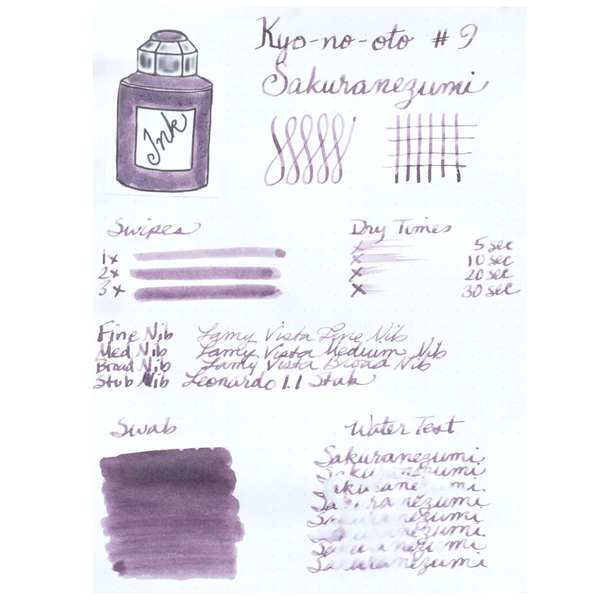 Kyo-no-oto # 9
Sakuranezumi
Ink
Swipes
1x
2x
3x
Dry Times
x 5 sec
x 10 sec
x 20 sec
x 30 sec
Fine Nib Lamy Vista Fine Nib
Med Nib Lamy Vista Medium Nib
Broad Nib Lamy Vista Broad Nib
Stub Nib Leonardo 1.1 Stub
Swab
Water Test
Sakuranezumi
Sakuranezumi
Sakuranezumi
Sakuranezumi
Sakuranezumi
Sakuranezumi
Sakuranezumi
Sakuranezumi